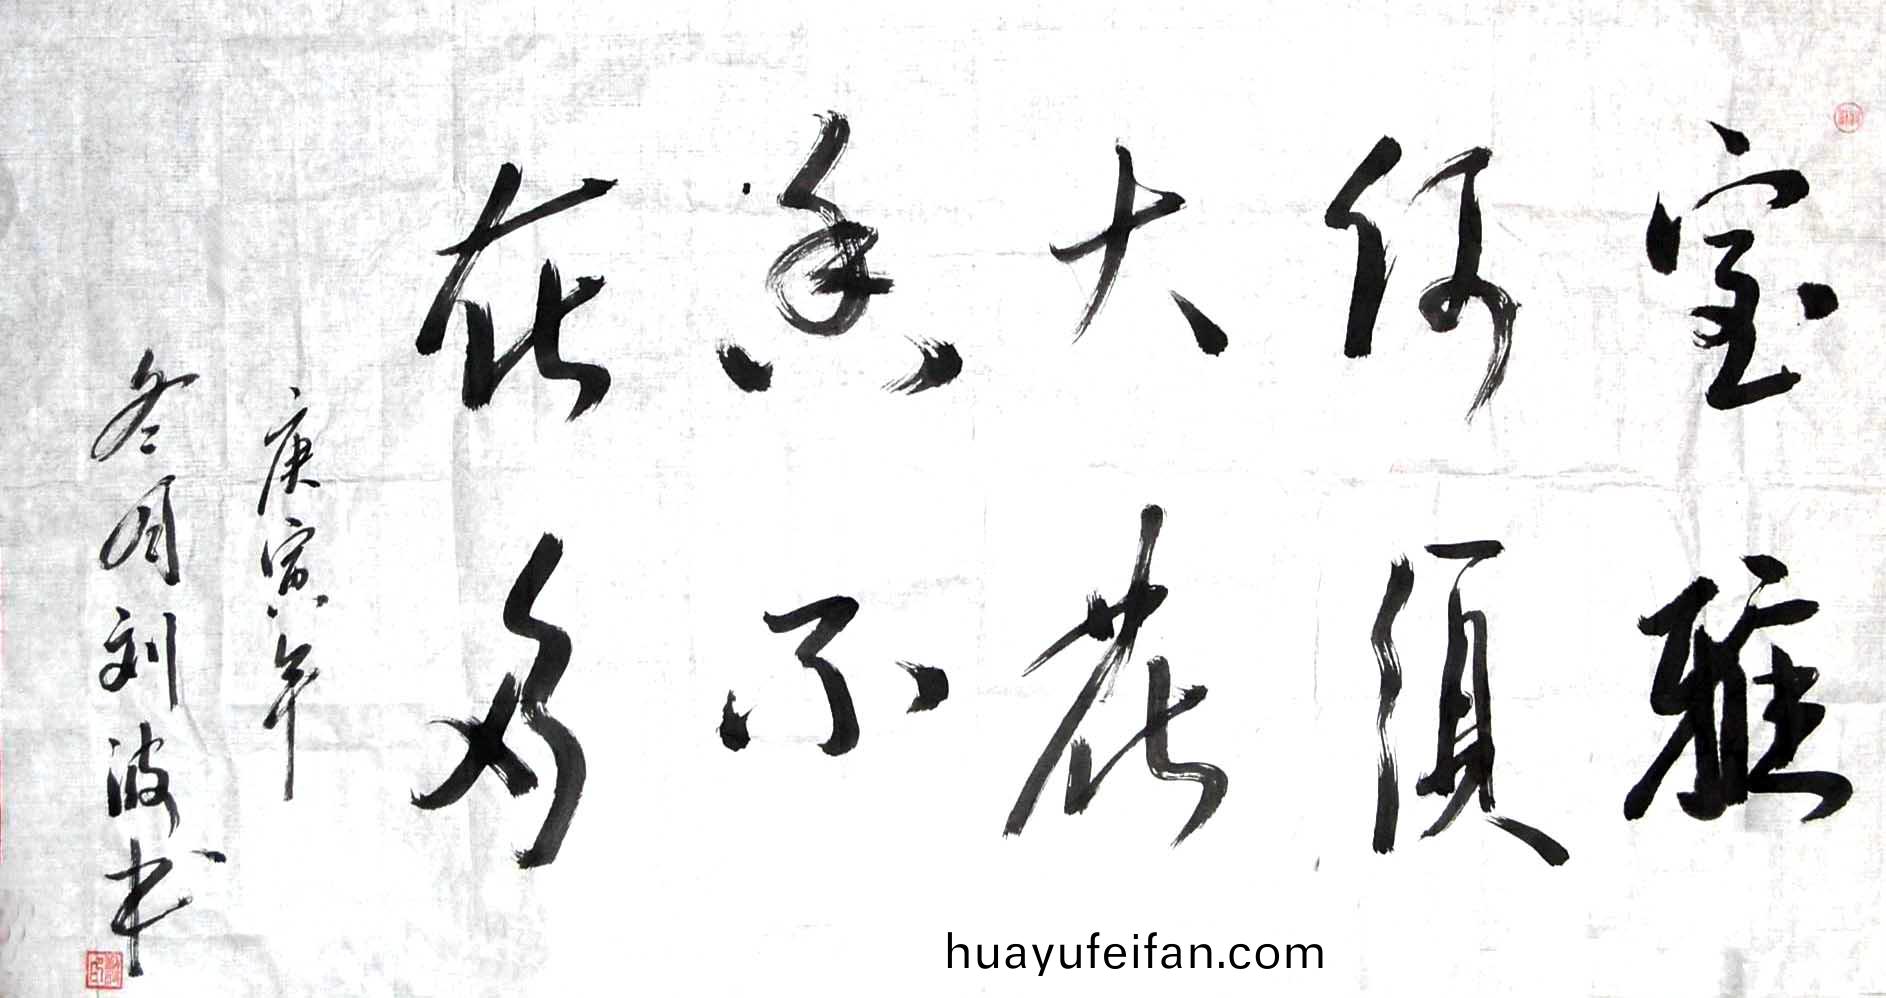 室雅
何须
大花
香不
在多
庚寅年
冬月刘波书
huayufeifan.com